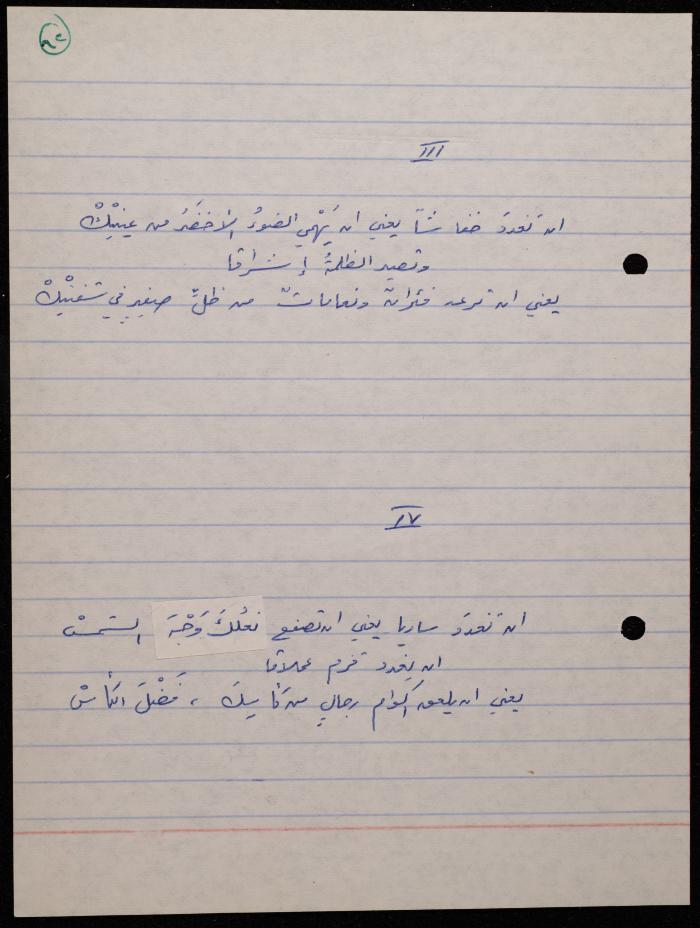 ٢٥
III
ان تغدوَ خفاشاً يعني ان يَهْمي الضوءُ الأخضَرُ من عينيْكْ
وتصير الظلمةُ إشراقا
يعني ان فئرانٌ ونعاماتٌ من ظلٍّ صغيرٍ في شفتيْكْ
IV
ان تغدوَ ساريا يعني ان تصفع نعلُكَ وَجْهَ الشمسْ
ان يغدو قزم عملاقا
يعني ان يلعق اكوام رجالٍ من كأسِكَ ، فَضْلَ الكأسْ